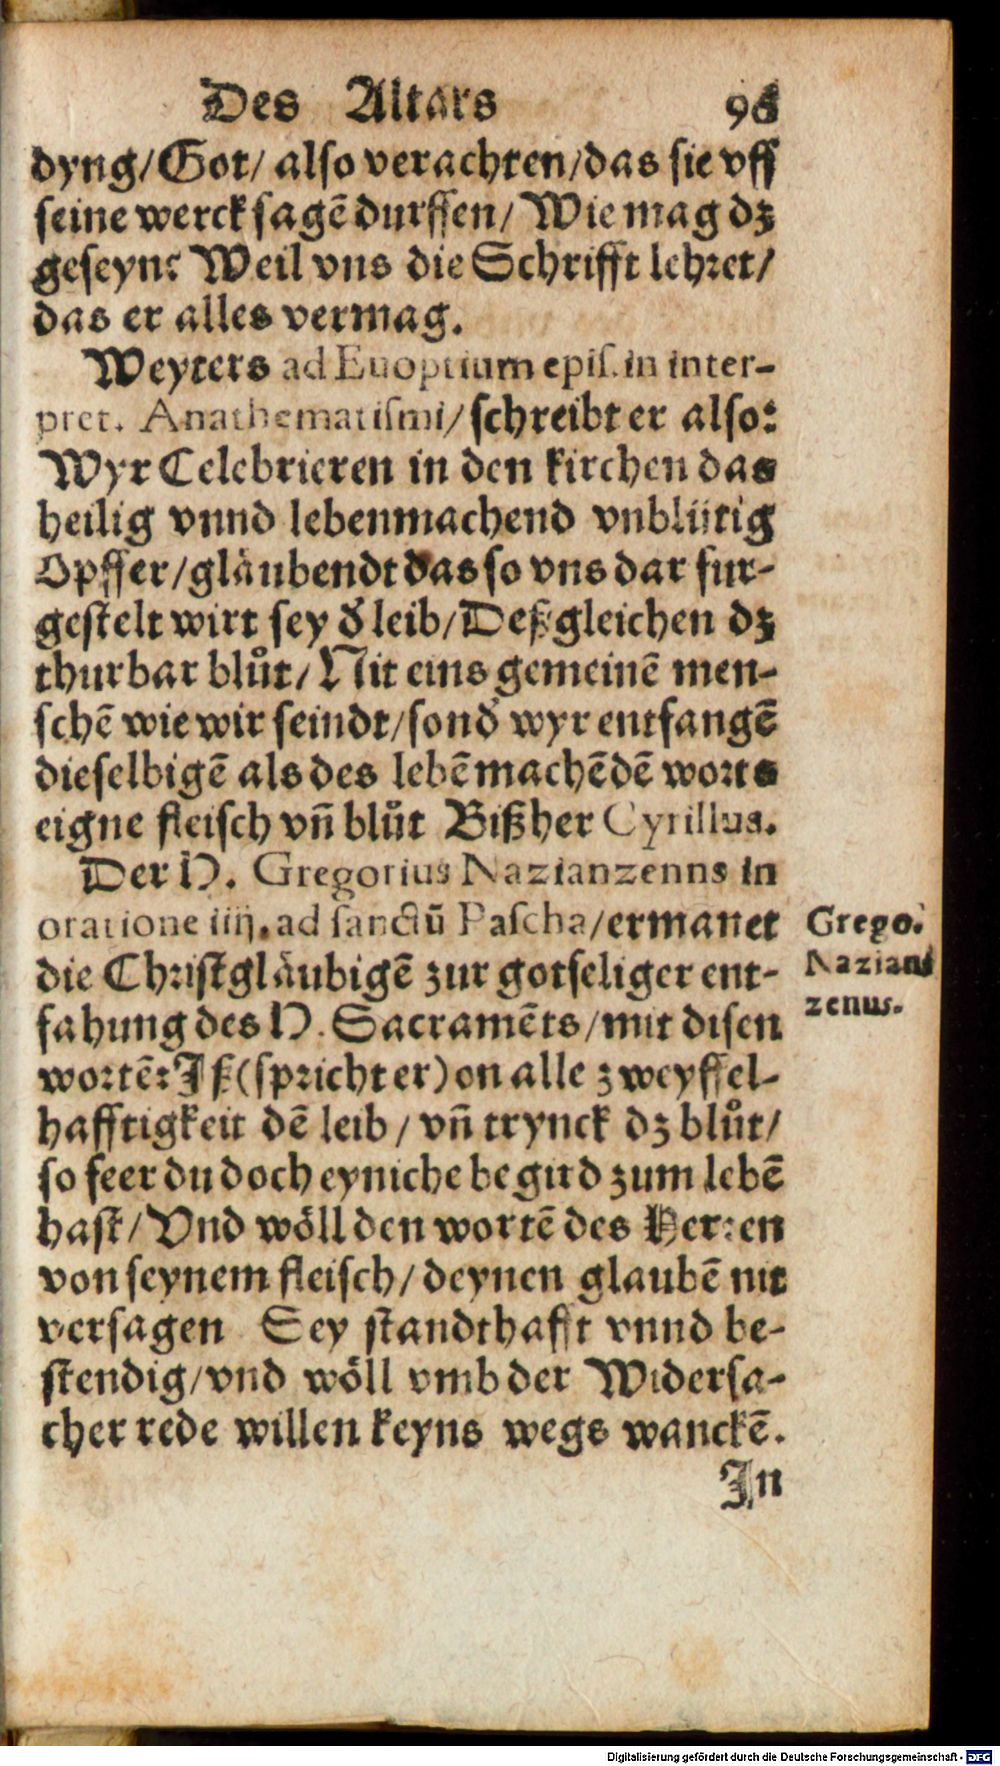 Des Altars 96
dyng/Got/ also verachten/das sie vff
seine werck sagē durffen/ Wie mag dz
geseyn? Weil vns die Schrifft lehret/
das er alles vermag.
Weyters ad Euoptium epis. in inter-
pret. Anathematismi/schreibt er also:
Wyr Celebrieren in den kirchen das
heilig vnnd lebenmachend vnblütig
Opffer/gläubendt das so vns dar fur-
gestelt wirt sey d̛ leib/Deßgleichen dz
thurbar blůt/Nit eins gemeinē men-
schē wie wir seindt/sond̛ wyr entfangē
dieselbigē als des lebēmachēdē worts
eigne fleisch vñ blůt Bißher Cyrillus.
Der H. Gregorius Nazianzenns in
oratione iiij. ad sanctū Pascha/ermanet
die Christgläubigē zur gotseliger ent-
fahung des H. Sacramēts/mit disen
wortē: Iß(spricht er)on alle zweyffel-
hafftigkeit dē leib/ vñ trynck dz blůt/
so feer du doch eyniche begird zum lebē
hast/Vnd wöll den wortē des Herren
von seynem fleisch/deynen glaubē nit
versagen Sey standthafft vnnd be-
stendig/vnd wöll vmb der Widersa-
cher rede willen keyns wegs wanckē.
In
Grego.
Nazian
zenus.
Digitalisierung gefördert durch die Deutsche Forschungsgemeinschaft - DFG